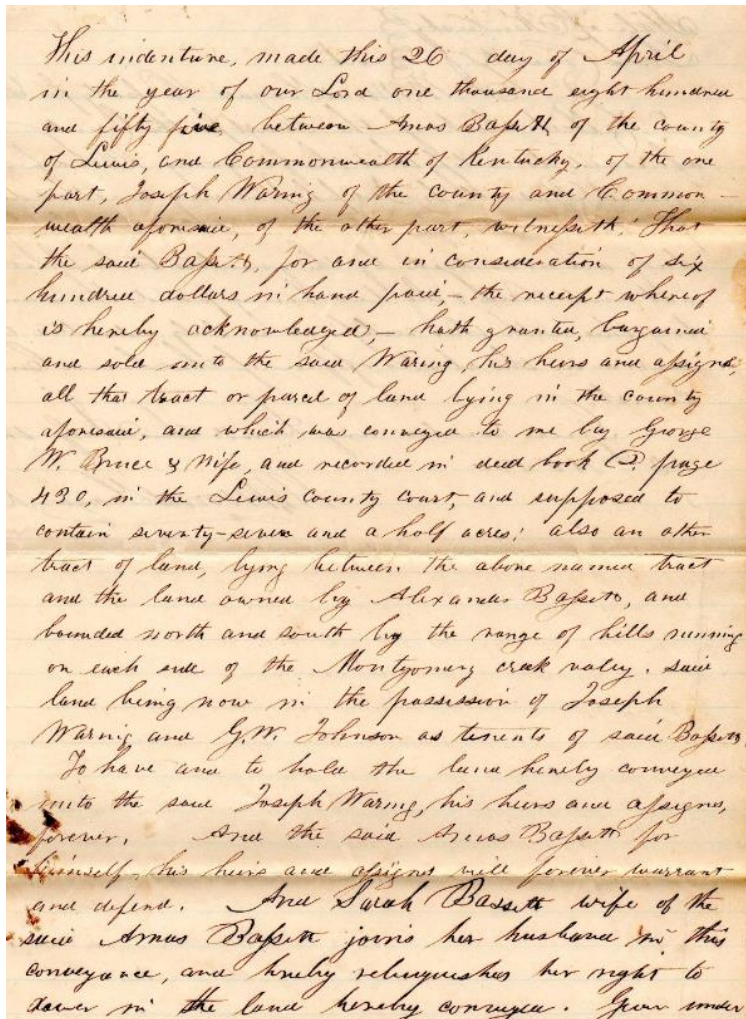 This indenture, made this 26 day of April
in the year of our Lord one thousand eight hundred
and fifty five, between Amos Bassett of the county
of Lewis, and Commonwealth of Kentucky, of the one
part, Joseph Waring of the county and Common-
wealth aforesaid, of the other part, witnesseth: That
the said Bassett, for and in consideration of six
hundred dollars in hand paid, – the receipt whereof
is hereby acknowledged, – hath granted, bargained
and sold unto the said Waring, his heirs and assigns,
all that tract or parcel of land lying in the county
aforesaid, and which was conveyed to me by George
W. Bruce & Wife, and recorded in deed book page
430, in the Lewis county court, and supposed to
contain seventy-seven and a half acres; also an other
tract of land, lying between the above named tract
and the land owned by Alexander Bassett, and
bounded north and south by the range of hills running
on each side of the Montgomery creek valey. said
land being now in the possession of Joseph
Waring and G.W. Johnson as tenents of said Bassett.
To have and to hold the land hereby conveyed
unto the said Joseph Waring, his heirs and assignes,
forever. And the said Amos Bassett for
himself, his heirs and assignes will forever warrant
and defend. And Sarah Bassett wife of the
said Amos Bassett joins her husband in this
conveyance, and hereby relinquishes her right to
dower in the land hereby conveyed. Given under